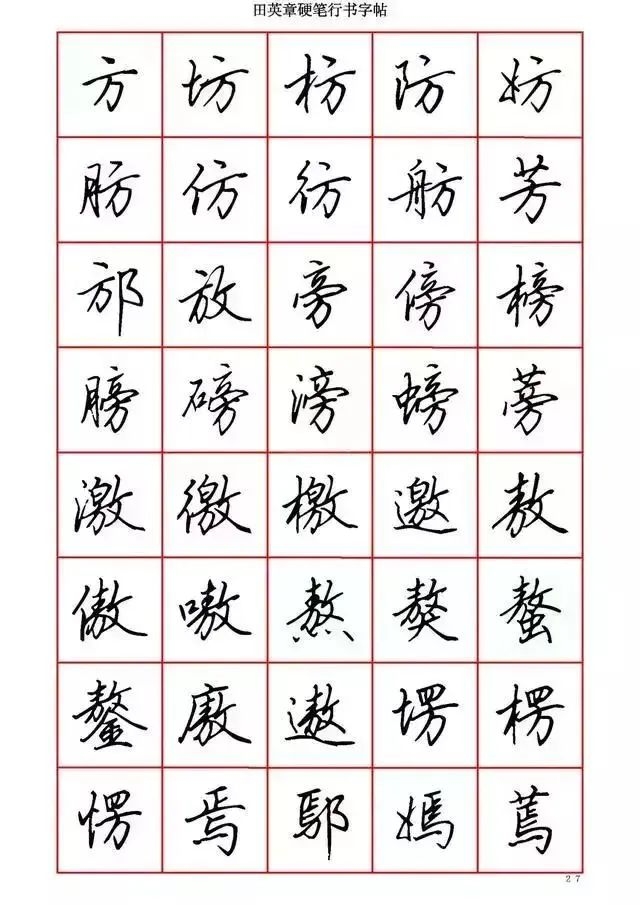 田英章硬笔行书字帖
方 坊 枋 防 妨
肪 仿 彷 舫 芳
邡 放 旁 傍 榜
膀 磅 滂 螃 蒡
激 徼 檄 邀 敖
傲 嗷 熬 獒 螯
鏊 廒 遨 塄 楞
愣 焉 鄢 嫣 蔫
27